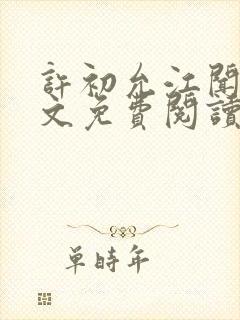 許初允江聞
文免費閱讀
單時年